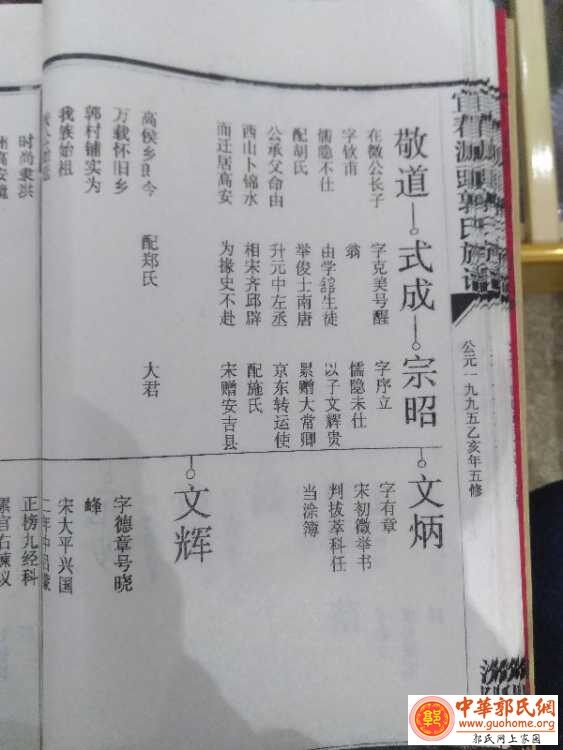 郭氏族谱
公元一九九五乙亥年五修
敬道
在微公长子
字钦甫
儒隐不仕
配胡氏
公承父命由
西山卜锦水
而迁居高安
高侯乡即今
万载怀旧乡
郭村铺实为
我族始祖
式成
字克美号醒
翁
由学馆生徒
举俊士南唐
升元中左丞
相宋齐邱辟
为掾史不赴
配郑氏
宗昭
字序立
儒隐未仕
以子文辉贵
累赠大常卿
京东转运使
配施氏
宋赠安吉县
大君
文炳
字有章
宋初徵举书
判拔萃科任
当涂簿
文辉
字德章号晓
峰
宋大平兴国
二年中吕蒙
正榜九经科
累官右谏议
时尚裴洪
高安镇
中華郭氏網
www.guohome.org
郭氏网上家园